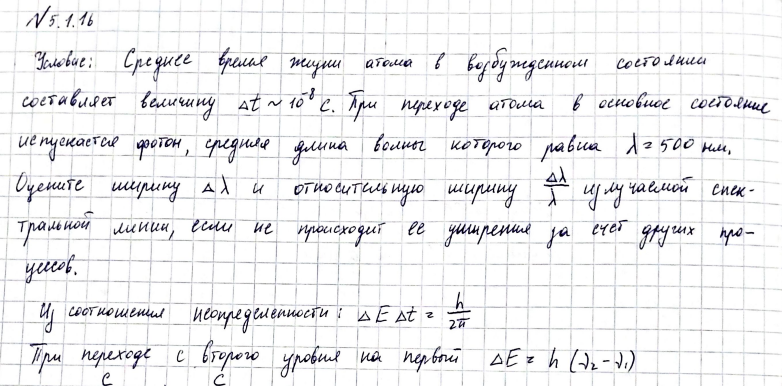 №5.1.16
Условие: Среднее время жизни атома в возбужденном состоянии
составляет величину Δt ~ 10⁻⁸ с. При переходе атома в основное состояние
испускается фотон, средняя длина волны которого равна λ = 500 нм.
Оцените ширину Δλ и относительную ширину Δλ/λ излучаемой спек-
тральной линии, если не происходит ее уширения за счет других про-
цессов.
Из соотношения неопределенности: ΔE Δt = h/2π
При переходе с второго уровня на первый ΔE = h (ν₂ - ν₁)
c c